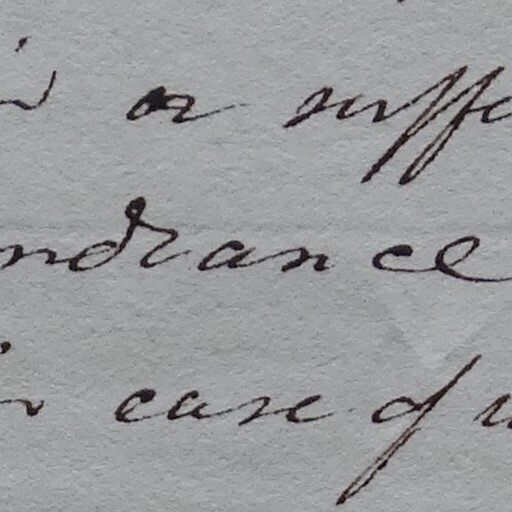 or suffe
ndrance
case of